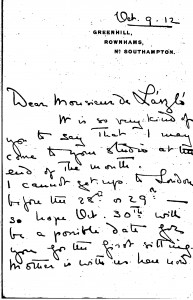 Oct. 9. 12
GREENHILL,
ROWNHAMS,
Nr SOUTHAMPTON.
Dear Monsieur de László
It is so very kind of
you to say that I may
come to your studio at the
end of the month.
I cannot get up to London
before the 28th or 29th –
so hope Oct. 30th will
be a possible date for
you for the first sitting.
Mother is with us here now